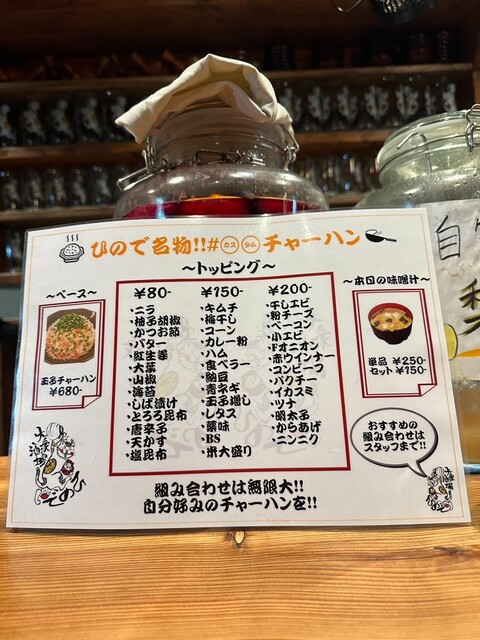 ひので名物!!#カスタムチャーハン
〜トッピング〜
〜ベース〜
玉子チャーハン
¥680-
¥80-
・ニラ
・柚子胡椒
・かつお節
・バター
・紅生姜
・大葉
・山椒
・海苔
・しば漬け
・とろろ昆布
・唐辛子
・天かす
・塩昆布
¥150-
・キムチ
・梅干し
・コーン
・カレー粉
・ハム
・食べラー
・納豆
・青ネギ
・玉子増し
・レタス
・薬味
・BS
・米大盛り
¥200-
・干しエビ
・粉チーズ
・ベーコン
・小エビ
・Fオニオン
・赤ウインナー
・コンビーフ
・パクチー
・イカスミ
・ツナ
・明太子
・からあげ
・ニンニク
〜本日の味噌汁〜
単品 ¥250-
セット ¥150-
おすすめの
組み合わせは
スタッフまで!!
組み合わせは無限大!!
自分好みのチャーハンを!!
自